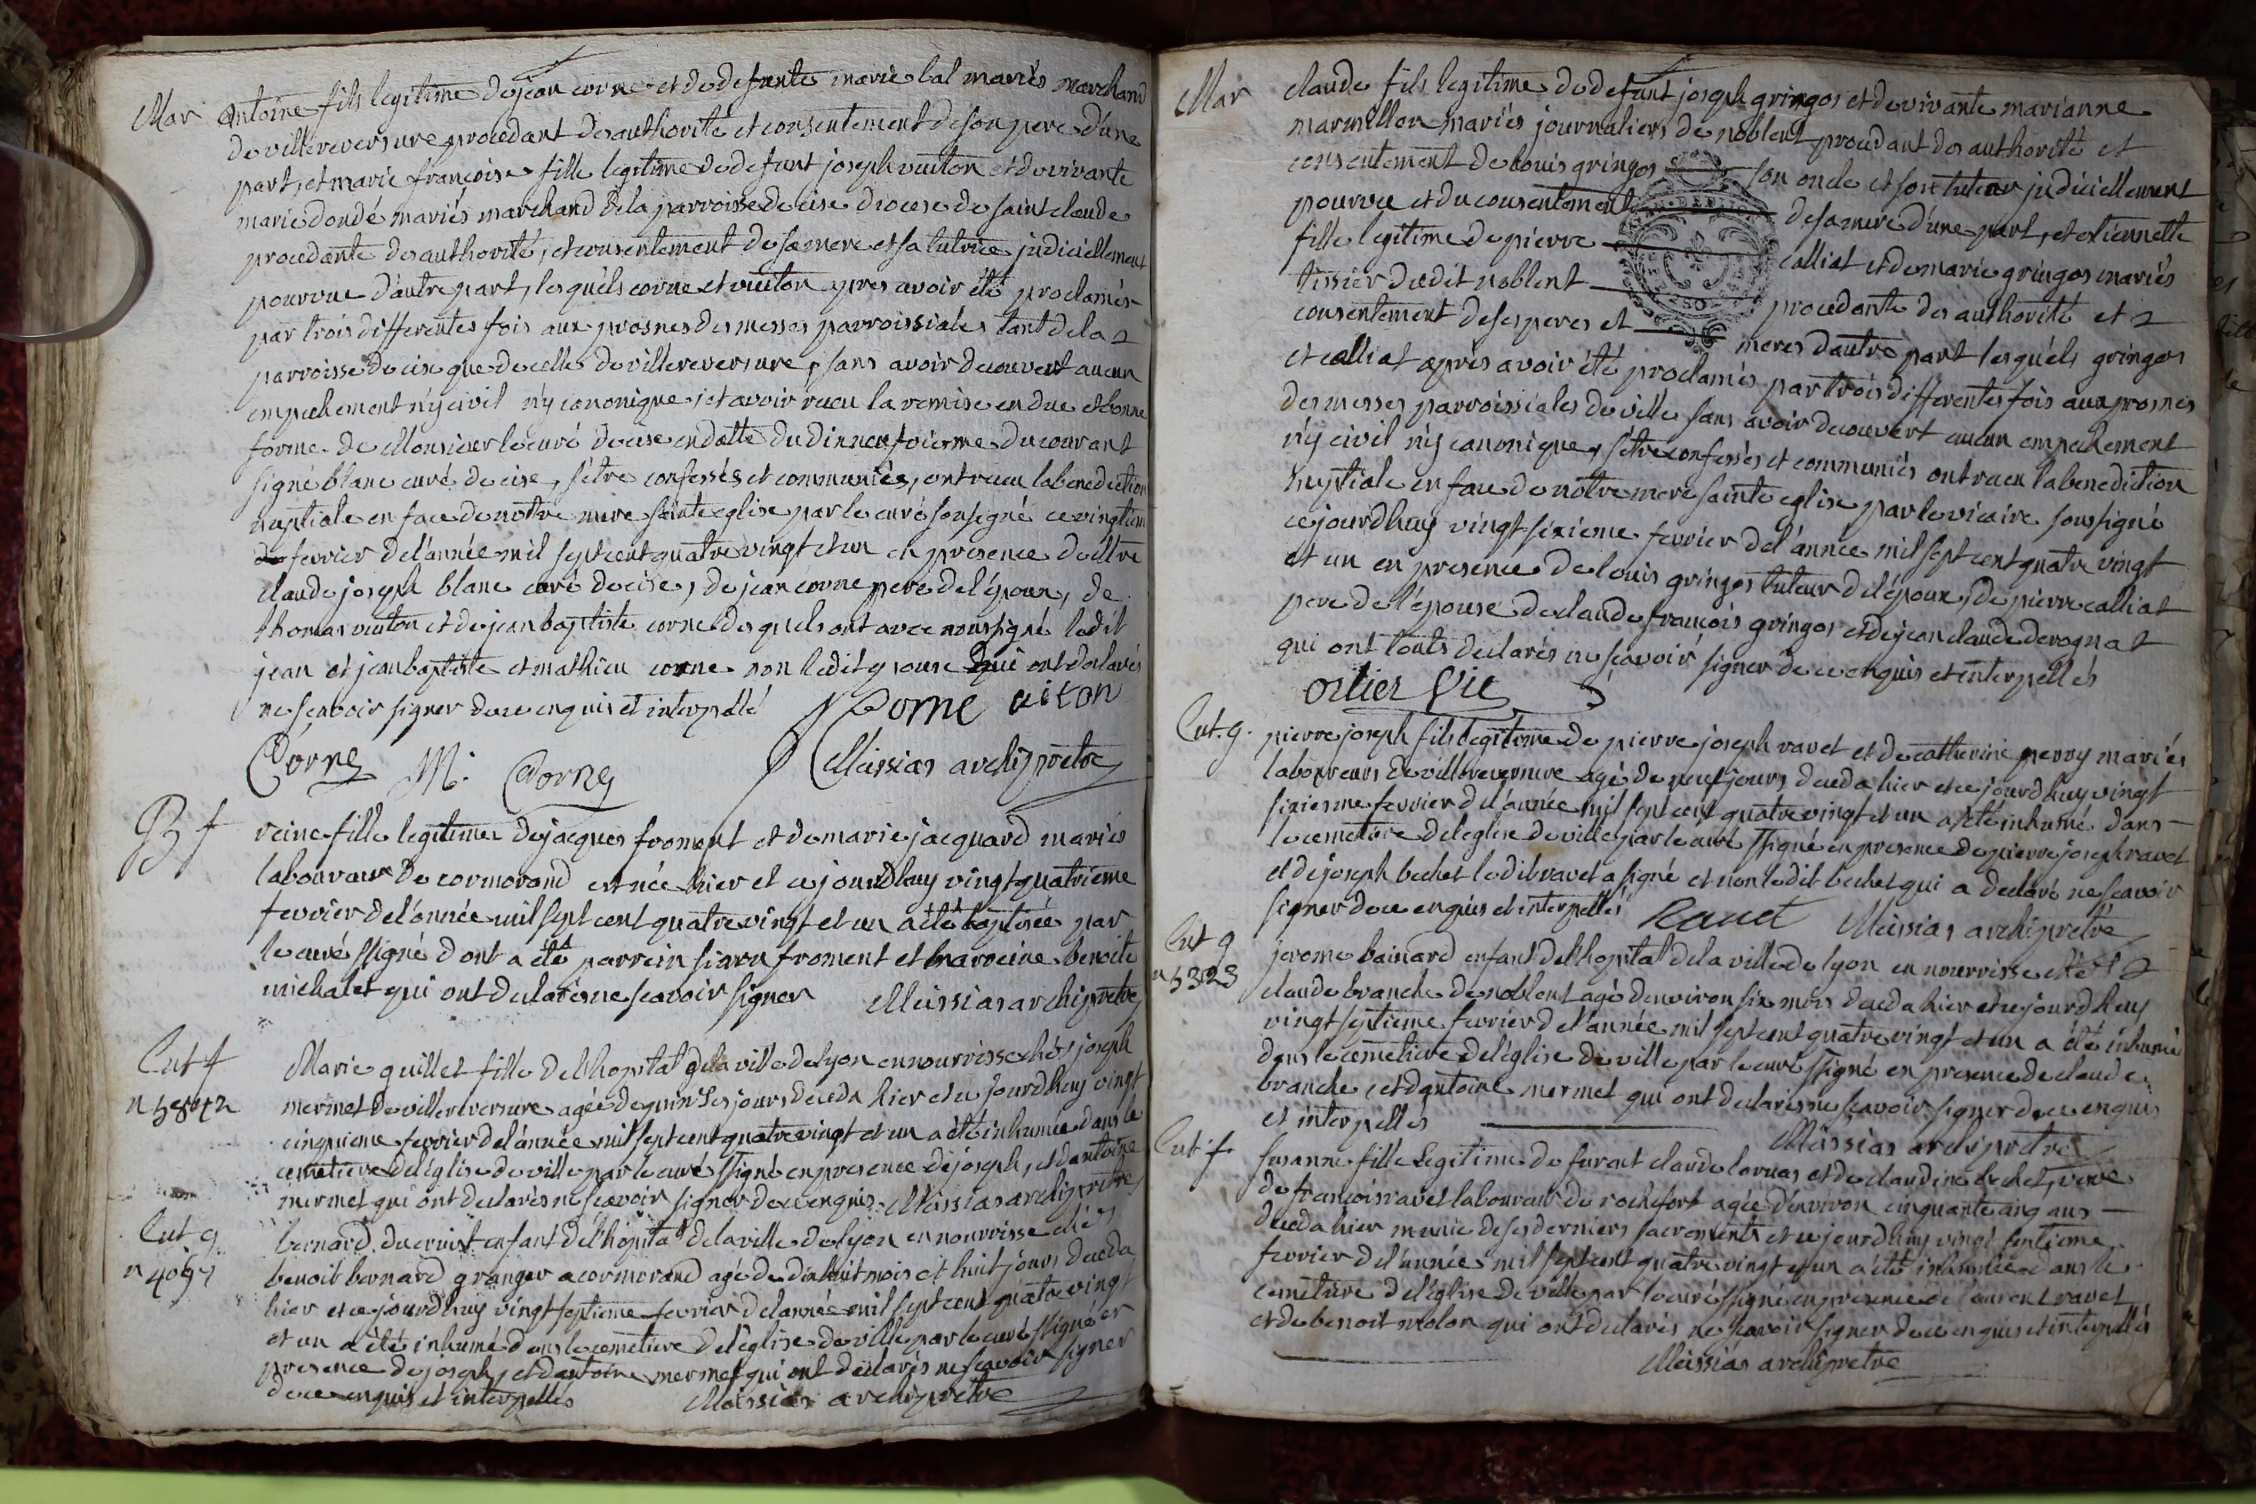 Mar
antoine fils legitime de jean corne et de defunte marie lal mariés marchand
de villereversure procedant de authorité et consentement de son pere d'une
part, et marie françoise fille legitime de defunt joseph vuiton et de vivante
marie dondé mariés marchand de la parroisse de cise diocese de saint claude
procedante de authorité, et consentement de sa mere et sa tutrice judiciellement
pourvue d'autre part, lesquéls corne et vuiton apres avoir été proclamés
par trois differentes fois aux prosnes des messes parroissiales tant de la
parroisse de cise que de celle de villereversure, sans avoir decouvert aucun
empechement n'y civil n'y canonique, et avoir recu la remise en due et bonne
forme de Monsieur le curé de cise en datte du dix neufvieme du courant
signé blanc curé de cise, s'étre confessés et communiés, ont recu la benediction
nuptiale en face de notre mere sainte eglise par le curé sousigné ce vingtiem
fevrier de l'année mil sept cent quatre vingt et un en presence de
claude joseph blanc curé de cise, de jean corne pere de l'époux, de
thomas vuiton et de jean baptiste corne des quels ont avec nous signé ledit
jean et jean baptiste et mathieu corne non ledit epoux qui ont declarés
ne scavoir signer de ce enquis et interpellé
Corne vuiton
Corne M. Corne Messias archiprêtre
B f
reine fille legitime de jacques froment et de marie jacquard mariés
laboureurs de cormorand est née hier et ce jourdhuy vingt quatrieme
fevrier de l'année mil sept cent quatre vingt et un a été baptisée par
le curé ssigné dont a été parrein froment et marreine benoite
michalet qui ont declarés ne scavoir signer Messias archiprêtre
Ent f
n 5842
Marie quillet fille de l'hopital de la ville de lyon en nourrisse chés joseph
mermet de villereversure agée de quinse jours deceda hier et ce jourdhuy vingt
cinquieme fevrier de l'année mil sept cent quatre vingt et un a été inhumée dans le
cemetiere de l'église de ville par le curé ssigné en presence de joseph, et d'antoine
mermet qui ont declarés ne scavoir signer de ce enquis Messias archiprêtre
Ent g
n 4097
bernard ducruix enfant de l'hôpital de la ville de lyon en nourrisse chés
benoit bernard granger a cormorand agé de dix huit mois et huit jours deceda
hier et ce jourdhuy vingt septieme fevrier de l'année mil sept cent quatre vingt
et un a été inhumé dans le cemetiere de l'église de ville par le curé ssigné en
presence de joseph, et d'antoine mermet qui ont declarés ne scavoir signer
de ce enquis et interpellés Messias archiprêtre
Mar
claude fils legitime de defunt joseph gringos et de vivante marianne
marmillon mariés journaliers de noblent, procedant de authorité et
consentement de louis gringos son oncle et son tuteur judiciellement
pourvue et du consentement de sa mere d'une part, et etiennette
fille legitime de pierre calliat et de marie gringos mariés
tissier du dit noblent procedante de authorité et
consentement de ses peres et meres d'autre part lesquéls gringos
et calliat après avoir été proclamés par trois differentes fois aux prosnes
des messes parroissiales de ville sans avoir decouvert aucun empechement
n'y civil n'y canonique, s'étre confessés et communiés ont recu la benediction
nuptiale en face de notre mere sainte eglise par le vicaire soussigné
ce jourdhuy vingt sixieme fevrier de l'année mil sept cent quatre vingt
et un en presence de louis gringos tuteur de l'époux, de pierre calliat
pere de l'épouse de claude françois gringos et de jean claude derognat
qui ont touts declarés ne scavoir signer de ce enquis et interpellés
ortier Vic
Ent. g.
pierre joseph fils legitime de pierre joseph ravet et de catherine perroy mariés
laboureurs de villereversure agé de neuf jours deceda hier et ce jourd'huy vingt
sixiesme fevrier de l'année mil sept cent quatre vingt et un a été inhumé dans
le cemetiere de l'eglise de ville par le curé ssigné en presence de pierre joseph ravet
et de joseph bechet ledit ravet a signé et non ledit bechet qui a declaré ne scavoir
signer de ce enquis et interpellés Ravet Messias archiprêtre
Ent g
n 5323
jerome bainard enfant de l'hopital de la ville de lyon en nourrisse chés
claude branche de noblent agé d'environ six mois deceda hier et ce jourdhuy
vingt septieme fevrier de l'année mil sept cent quatre vingt et un a été inhumé
dans le cemetiere de l'église de ville par le curé ssigné en presence de claude
branche, et d'antoine mermet qui ont declarés ne scavoir signer de ce enquis
et interpellés
Messias archiprêtre
Ent f
susanne fille legitime de furent claude larnas et de claudine bechet, veuve
de françois ravet laboureur de rochefort agée d'environ cinquante cinq ans
deceda hier munie de ses derniers sacrements et ce jourdhuy vingt septieme
fevrier de l'année mil sept cent quatre vingt et un a été inhumée dans le
cemetiere de l'église de ville par le curé ssigné en presence de laurent ravet
et de benoit molon qui ont declarés ne scavoir signer de ce enquis et interpellés
Messias archiprêtre